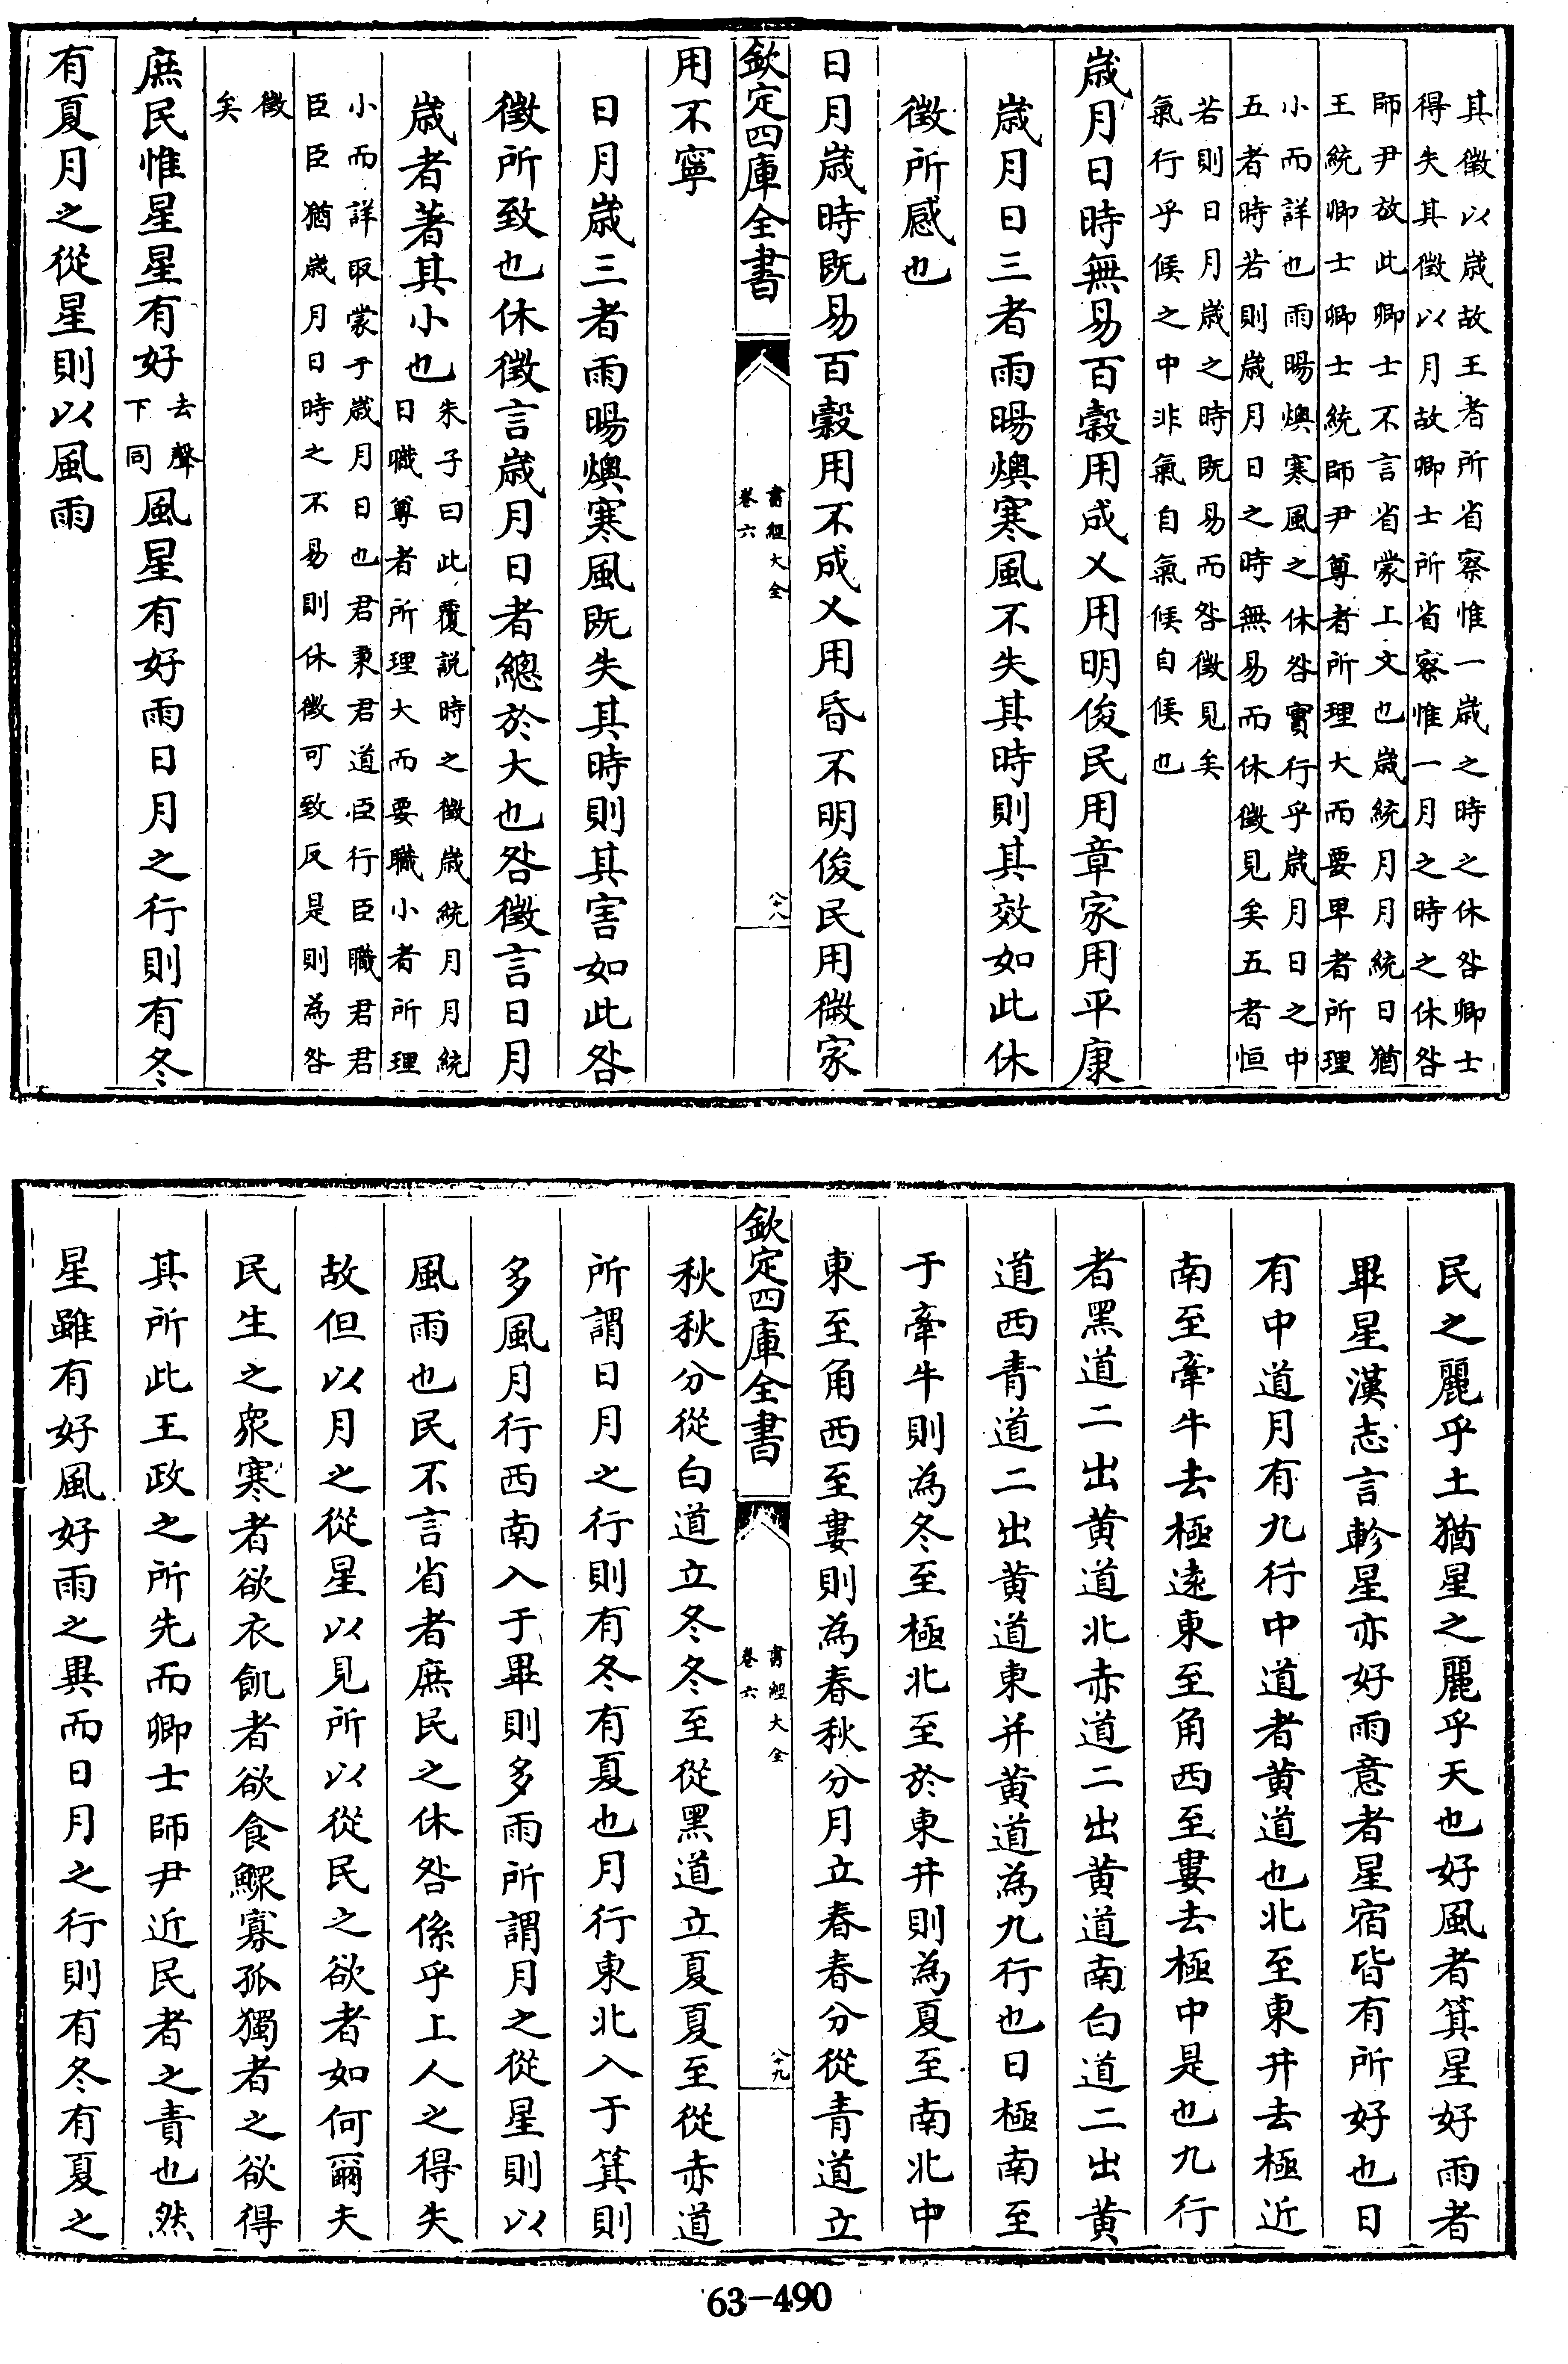 其徵以歳故王者所省察惟一歳之時之休咎卿士
得失其徵以月故卿士所省察惟一月之時之休咎
師尹放此卿士不言省蒙上文也歳統月月統日猶
王統卿士卿士統師尹尊者所理大而要卑者所理
小而詳也雨暘燠寒風之休咎實行乎歳月日之中
五者時若則歳月日之時無易而休徵見矣五者恒
若則日月歳之時既易而咎徵見矣
氣行乎候之中非氣自氣候自候也
歳月日時無易百穀用成乂用明俊民用章家用平康
歳月日三者雨暘燠寒風不失其時則其效如此休
徵所感也
日月歳時既易百穀用不成乂用昏不明俊民用微家
欽定四庫全書
書經大全
卷六
八十八
用不寧
日月歳三者雨暘燠寒風既失其時則其害如此咎
徵所致也休徵言歳月日者總於大也咎徵言日月
歳者著其小也
朱子曰此覆説時之徵歳統月月統
日職尊者所理大而要職小者所理
小而詳取蒙于歳月日也君秉君道臣行臣職君君
臣臣猶歳月日時之不易則休徵可致反是則為咎
徵
矣
庶民惟星星有好去聲下同風星有好雨日月之行則有冬
有夏月之從星則以風雨
民之麗乎土猶星之麗乎天也好風者箕星好雨者
畢星漢志言軫星亦好雨意者星宿皆有所好也日
有中道月有九行中道者黄道也北至東井去極近
南至牽牛去極遠東至角西至婁去極中是也九行
者黑道二出黄道北赤道二出黄道南白道二出黄
道西青道二出黄道東并黄道為九行也日極南至
于牽牛則為冬至極北至於東井則為夏至南北中
東至角西至婁則為春秋分月立春春分從青道立
欽定四庫全書
書經大全
卷六
八十九
秋秋分從白道立冬冬至從黑道立夏夏至從赤道
所謂日月之行則有冬有夏也月行東北入于箕則
多風月行西南入于畢則多雨所謂月之從星則以
風雨也民不言省者庶民之休咎係乎上人之得失
故但以月之從星以見所以從民之欲者如何爾夫
民生之衆寒者欲衣飢者欲食鰥寡孤獨者之欲得
其所此王政之所先而卿士師尹近民者之責也然
星雖有好風好雨之異而日月之行則有冬有夏之
63-490